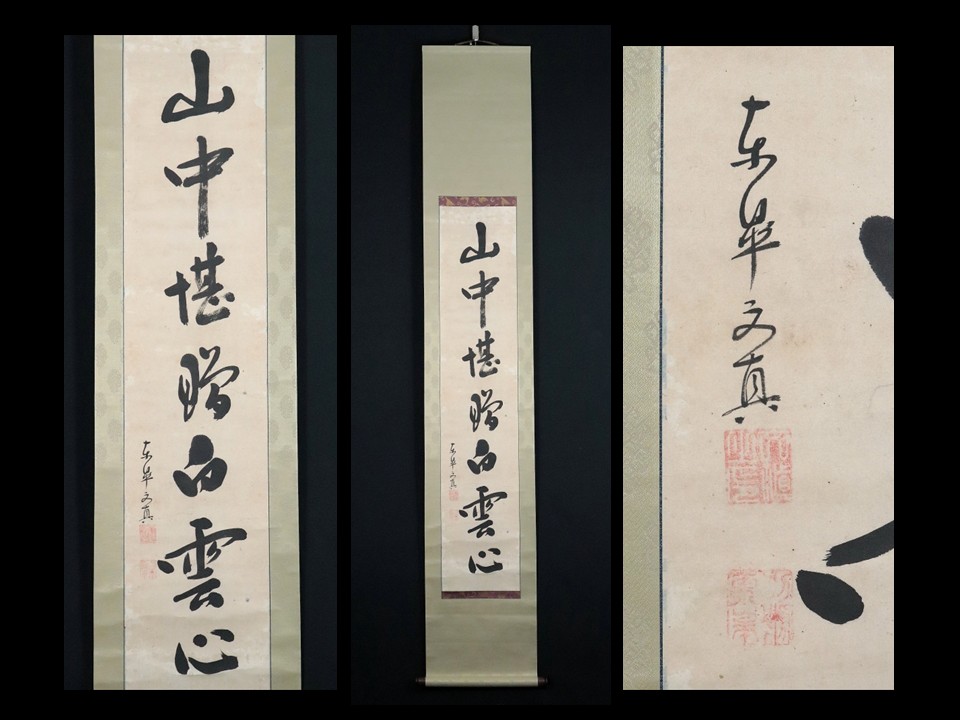 山中堪贈白雲心
東皐文真
山中堪贈白雲心
東皐文真
東皐文真